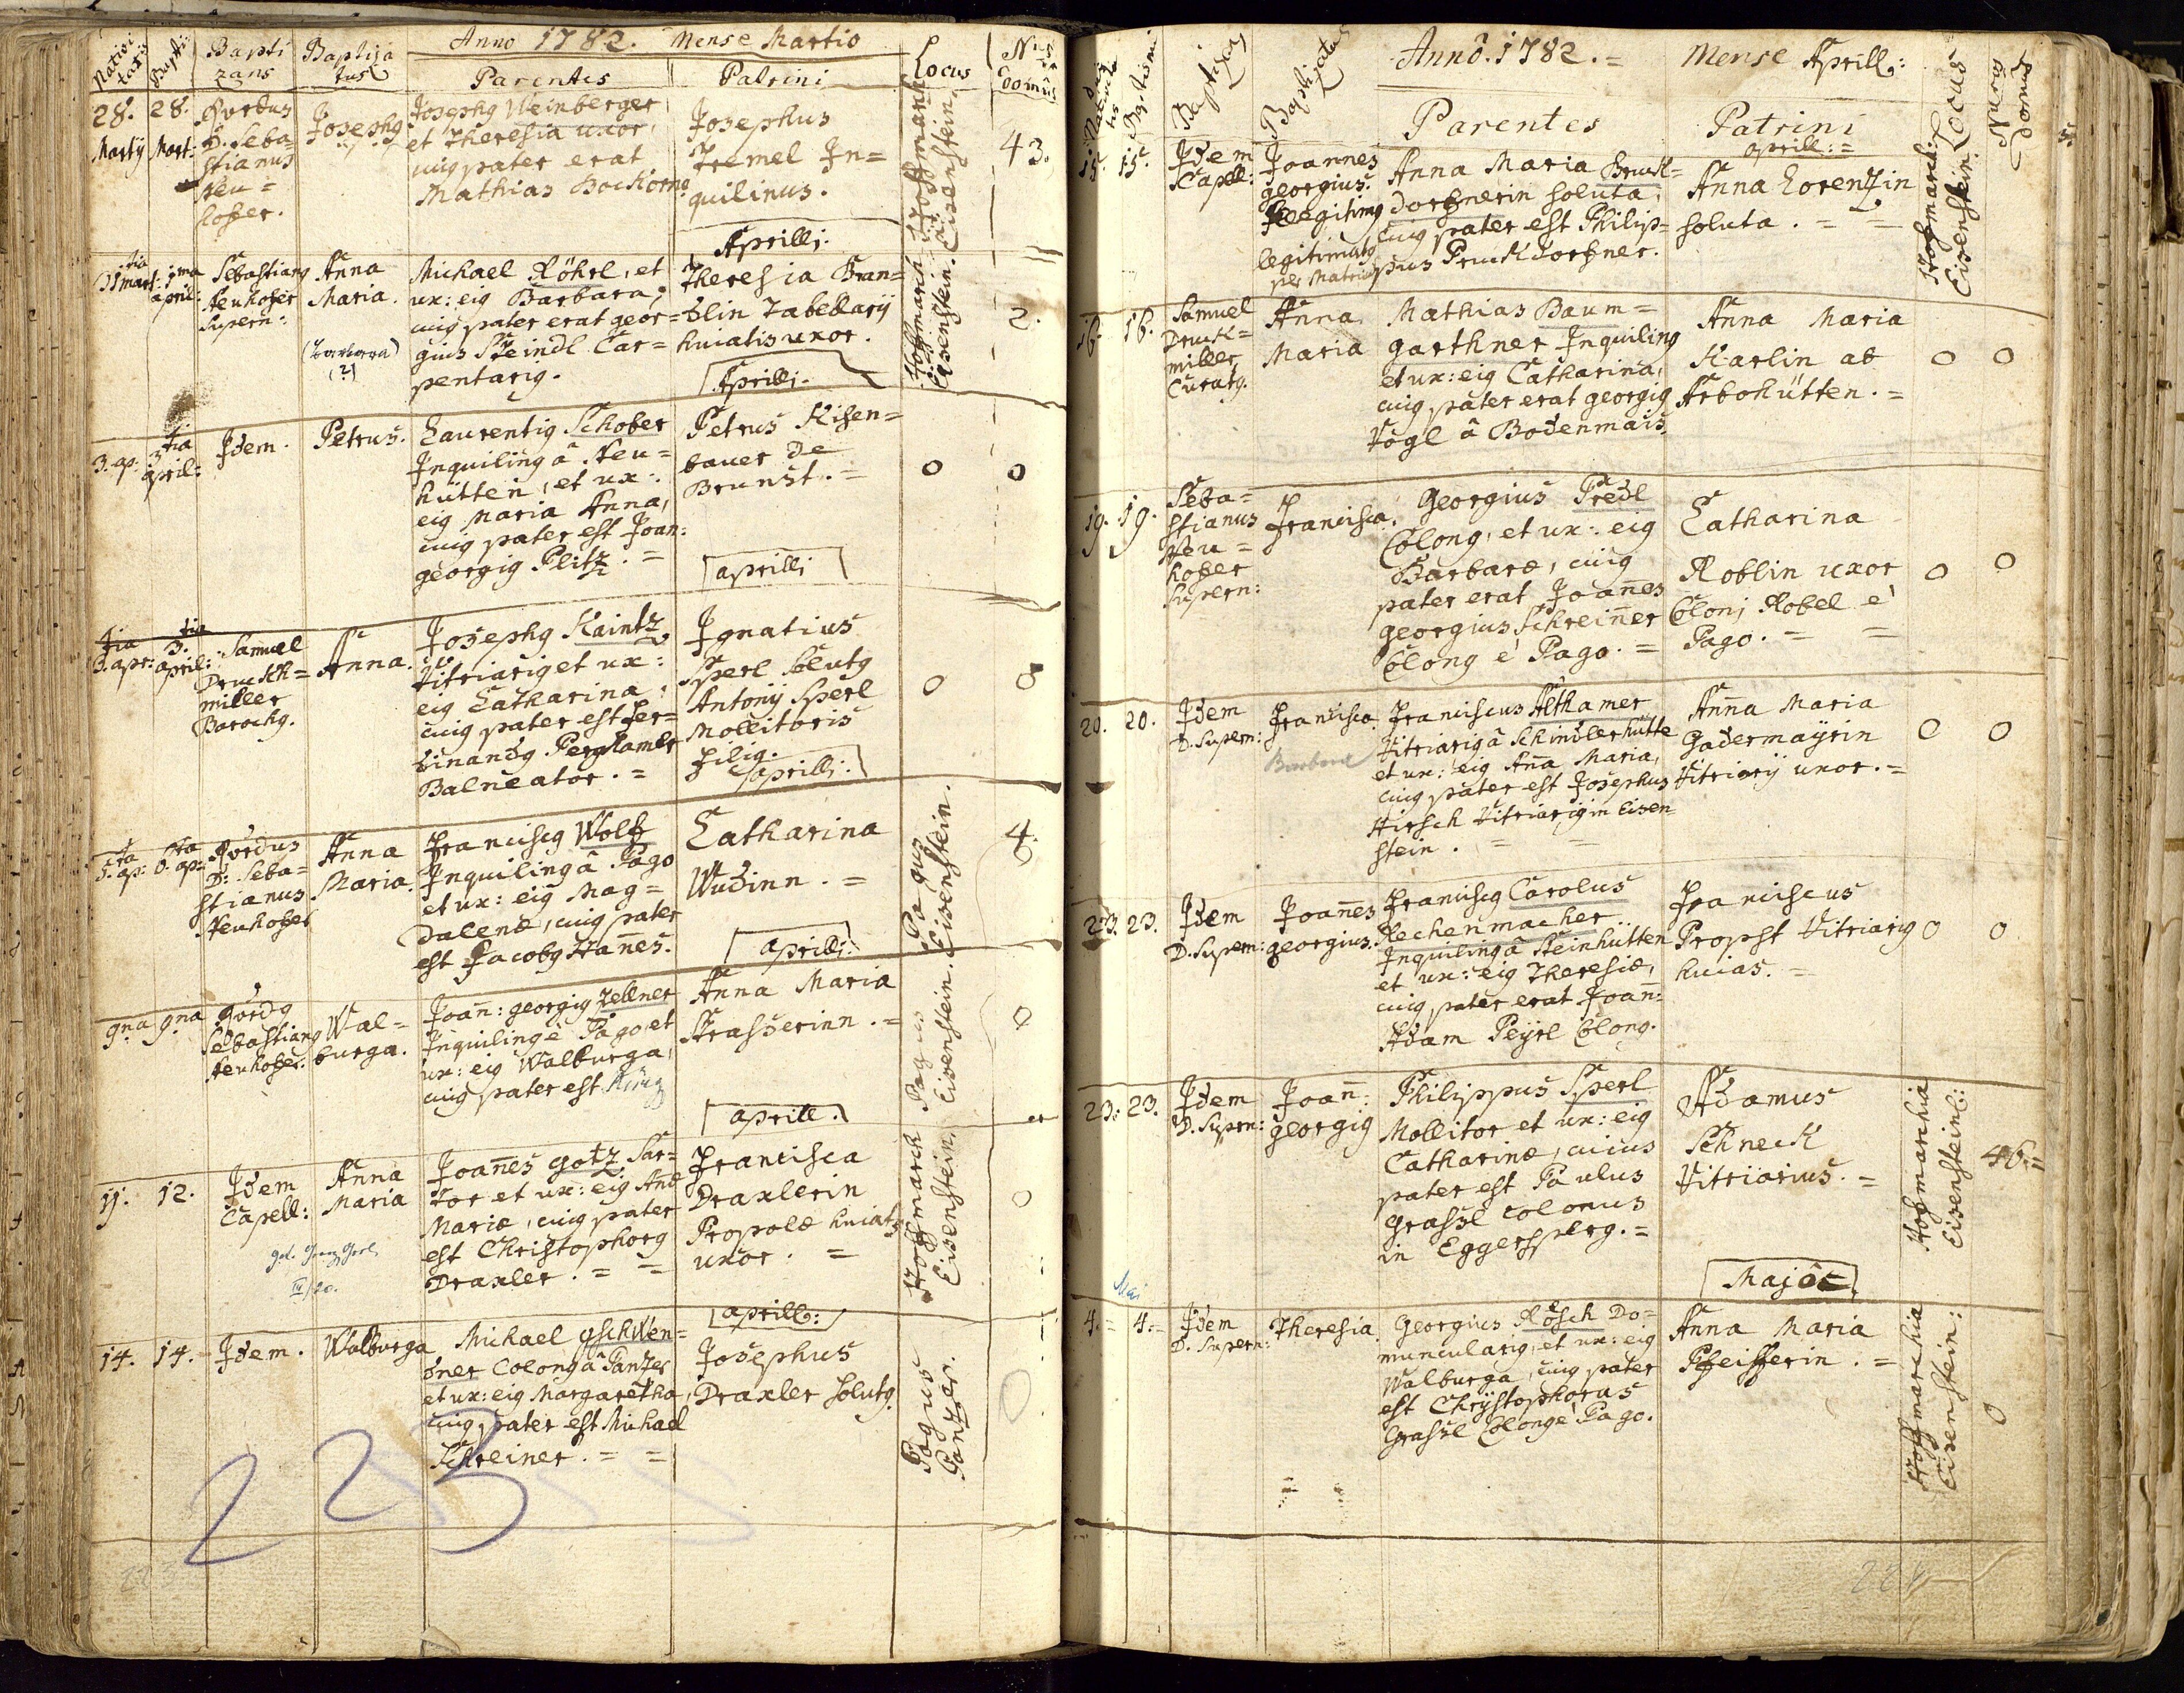 Nativi
tatis
Bapti
Bapti
zans
Baptiza
tus
Anno 1782. Mense Martio
Parentes
Patrini
Locus
Domus
28. Martij
28. Mart:
D. Seba=
stianus
Neu=
hofer.
Josephg
Josephg Weinberger
et Theresia uxor,
cuig pater erat
Mathias Bockorng
Josephus
Tremel In=
quilinus.
Hoffmarch
Eisenstein.
43.
Aprilli:
31 mart:
1ma april:
Sebastiang
Neuhofer
Supern:
Anna
Maria.
(Barbara)
(?)
Michael Röhrl, et
ux: eig Barbara,
cuig pater erat geor=
gius Steindl Car=
pentarig.
Theresia Bran=
dlin Tabellarij
huiatis uxor.
Hoffmarch
Eisenstein.
2.
Aprilli.
3. ap:
3tia april:
Idem.
Petrus.
Laurentig Schober
Inquiling â Neu=
hütten, et ux:
eig Maria Anna,
cuig pater est Joan:
georgig Plitz. =
Petrus Kisen=
bauer de
Brunst. =
0
0
aprilli
3. apr:
3tia april:
Samuel
Druckh=
miller
Parochg.
Anna.
Josephg Kaintz
Vitriarig et ux:
eig Catharina,
cuig pater est Fer=
dinandg Perghamer
Balneator. =
Ignatius
Sperl Solutg
Antonij Sperl
Mollitoris
filig.
0
0
aprilli:
5ta ap:
6ta ap:
D: Seba=
stianus
Neuhofer
Anna
Maria.
Francisg Wolf
Inquiling â Pago
et ux: eig Mag=
dalenæ, cuig pater
est Jacobg Hanes.
Catharina
Wudinn. =
Pagus
Eisenstein.
4.
aprilli:
9na
9na
Sebastiang
Neuhofer.
Wal=
burga.
Joan: georgig Zellner
Inquiling è Pago, et
ux: eig Walburga,
cuig pater est
Anna Maria
Strasserinn. =
Pagus
Eisenstein.
0
aprill.
11.
12.
Idem
Capell:
Anna
Maria
Joanes Gotz Sar=
tor et ux: eig Anæ
Mariæ, cuig pater
est Christophorg
Draxler. = =
Francisca
Draxlerin
Propolæ huiatg
uxor. =
Hoffmarch
Eisenstein.
0
aprill:
14.
14.
Idem.
Walburga
Michael Gschwen=
dner Colong â Pantzer
et ux: eig Margaretha,
cuig pater est Michael
Schreiner. = =
Josephus
Draxler solutg.
Pagus
Pantzer.
0
223
Anno. 1782. = Mense Aprill:
Parentes
Patrini
aprill: =
Locus
Numerus
Domus
15.
15.
Idem
Capell:
Joannes
georgius.
legitimatg
per Matrim
Anna Maria Bruck=
dorfnerin soluta,
cuig pater est Philip=
pus Pruckdorfner.
Anna Lorentzin
soluta. = =
Hofmarch:
Eisenstein.
16.
16.
Samuel
Druck=
miller
Curatg.
Anna
Maria
Mathias Baum=
garthner Inquiling
et ux: eig Catharina,
cuig pater erat georgig
Vogl â Bodenmais.
Anna Maria
Karlin ab
Arbohütten. =
0
0
19.
19.
Seba=
stianus
Neu=
hofer
Supern:
Francisca.
Georgius Predl
Colong, et ux: eig
Barbaræ, cuig
pater erat Joanes
georgius Schreiner
Colong è Pago. =
Catharina
Roblin uxor
Colonj Robel è
Pago. = =
0
0
20.
20.
Idem
D. Supern:
Francisca
Barbara
Franciscus Althamer
Vitriarig â Schindlerhütte
et ux: eig Ana Maria,
cuig pater est Josephus
Hirsch Vitriarig in Eisen
stein. = =
Anna Maria
Gadermayrin
Vitriarij uxor. =
0
0
23.
23.
Idem
D. Supern:
Joanes
georgius.
Francisg Carolus
Rechenmacher
Inquiling â Steinhütten
et ux: eig Theresiæ,
cuig pater erat Joan:
Adam Peyrl Colong.
Franciscus
Propst Vitriarig
huias. =
0
0
23.
23.
Idem
D. Supern:
Joan:
georgig
Philippus Sperl
Mollitor et ux: eig
Catharinæ, cuius
pater est Paulus
Grassl colonus
in Eggersperg. =
Adamus
Schneck
Vitriarius. =
Hofmarchia
Eisenstein:
46.
Mai
Majo
4. =
4. =
Idem
D. Supern:
Theresia
Georgius Rösch Do=
muncularig, et ux: eig
Walburga, cuig pater
est Chrystophorus
Grassl Colong è Pago.
Anna Maria
Pfeifferin. =
Hoffmarchia
Eisenstein:
0
224